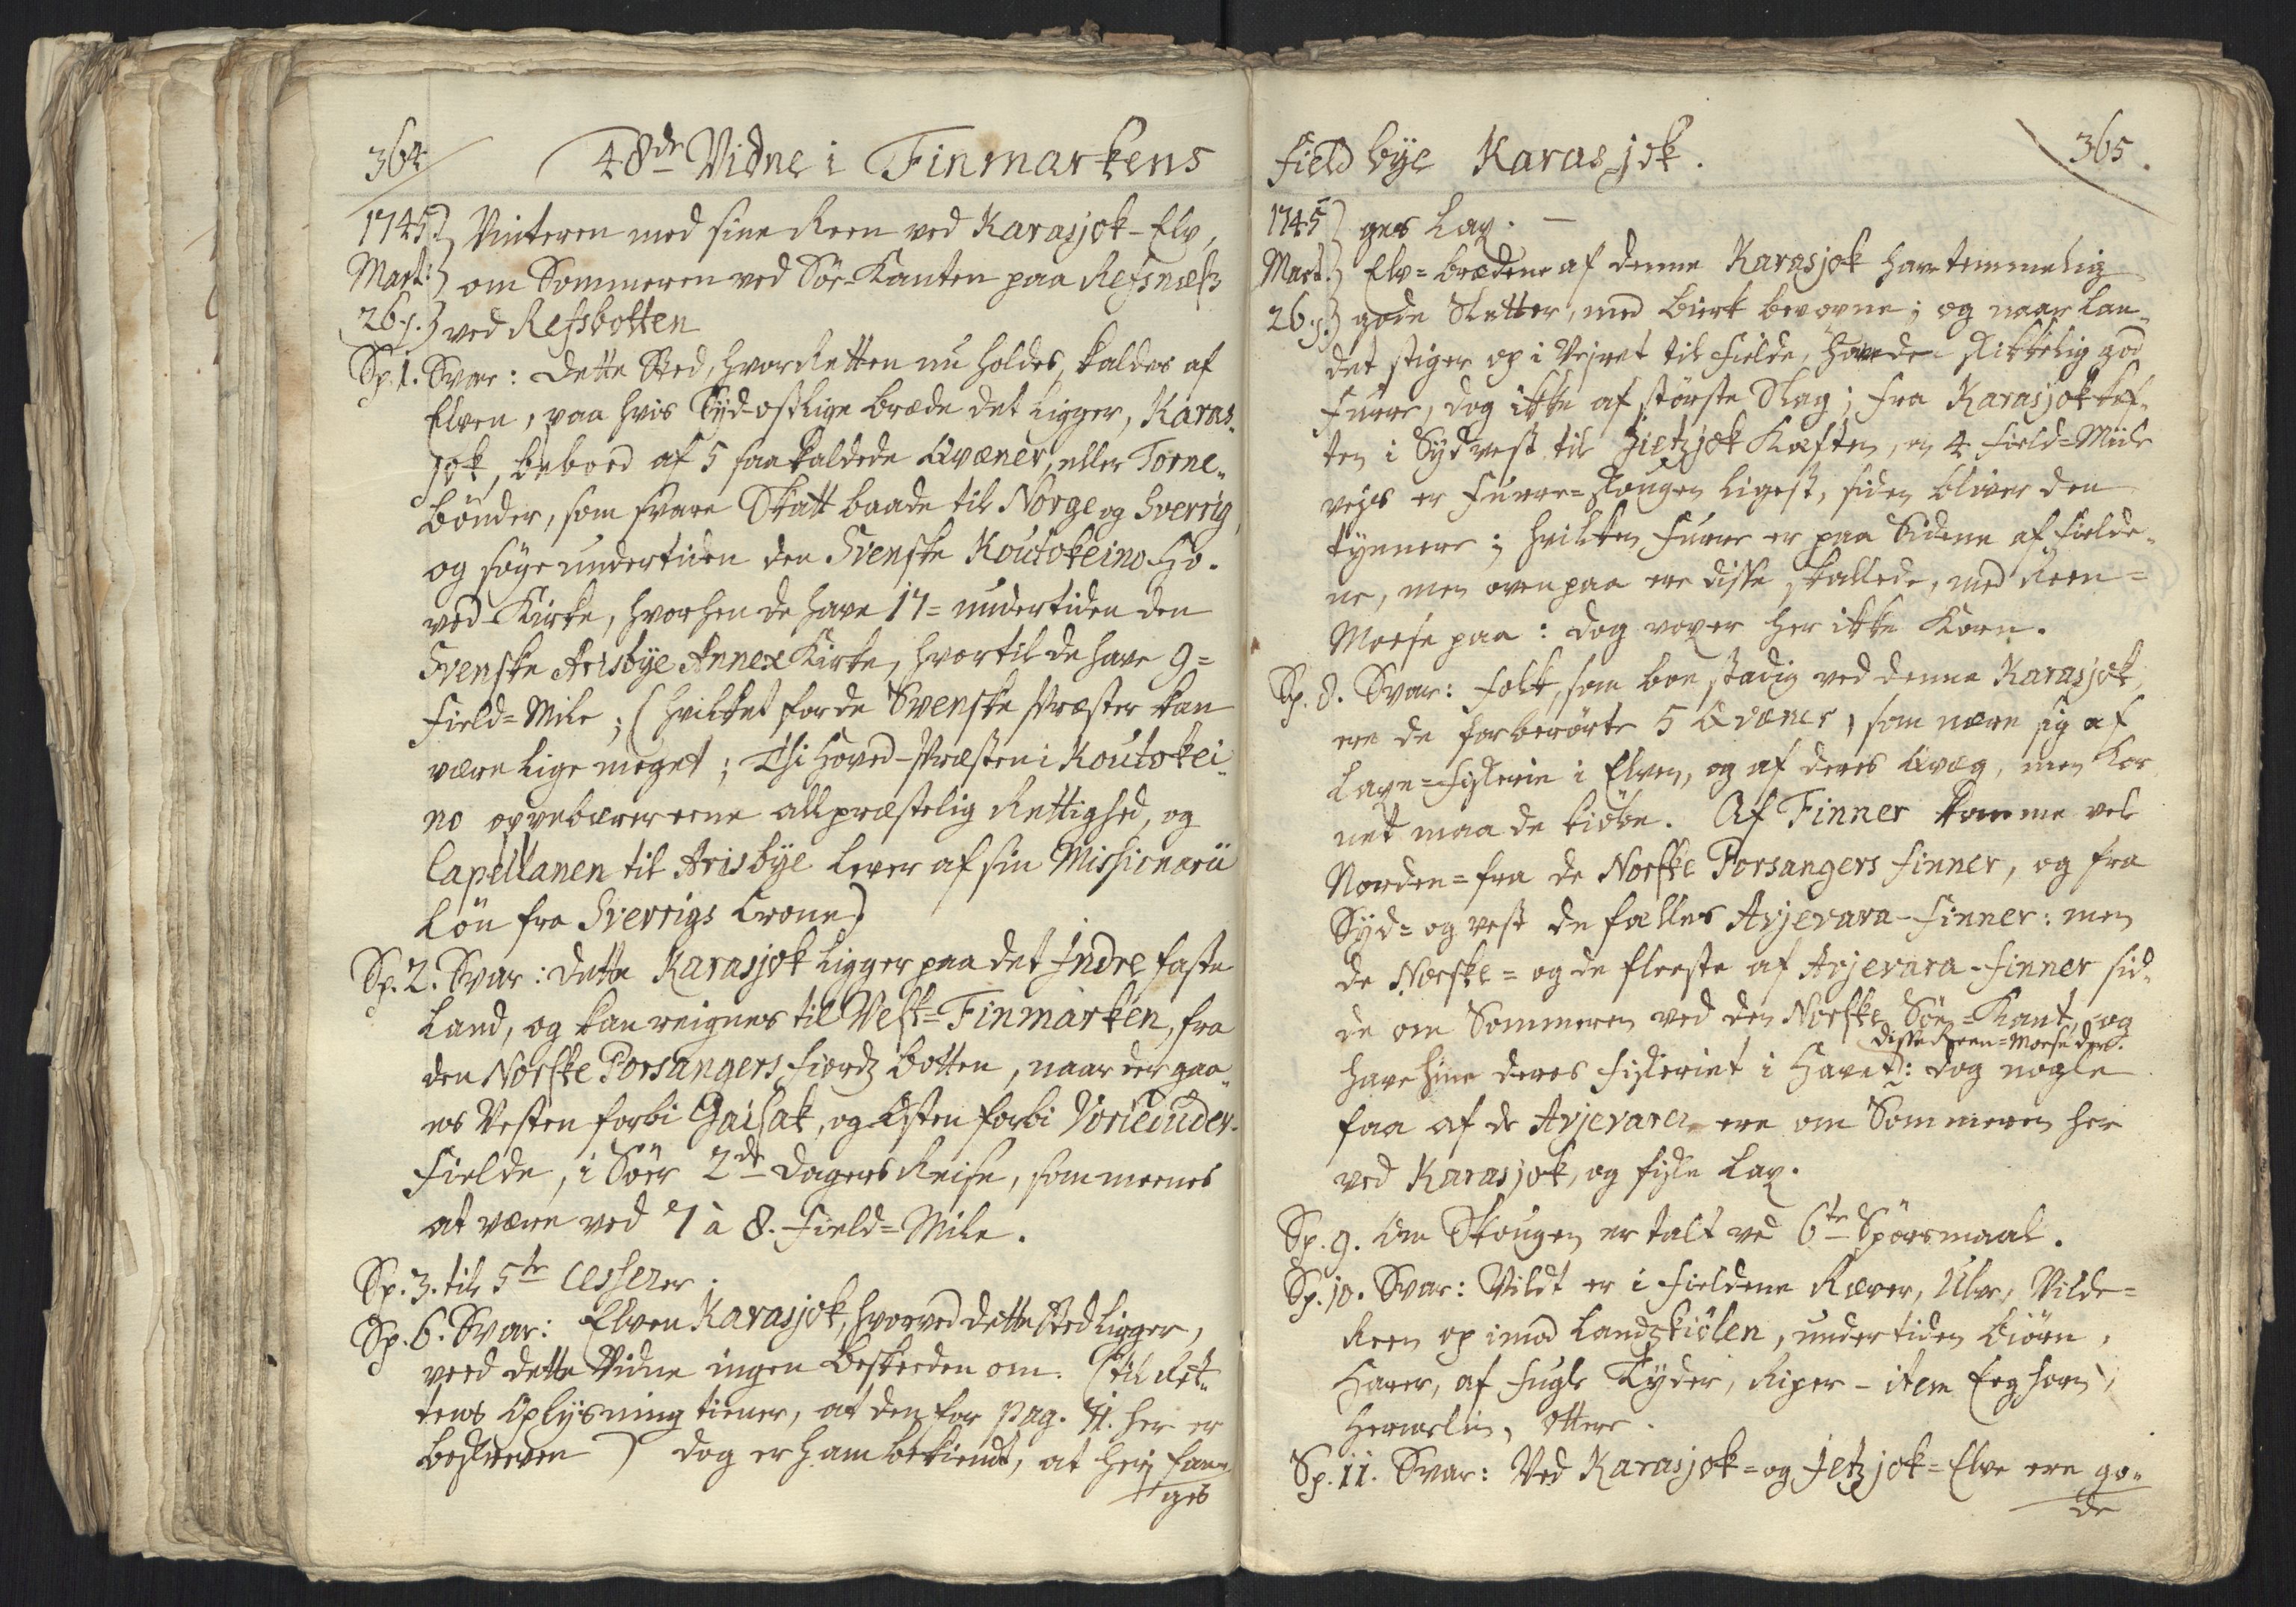 364
48de Vidne i Finmarkens
1745. Vinteren med sine Reen ved Karasjok-Elv,
Mart: om Sommeren ved Söe-Kanten paa Refsnæss
26. j. ved Refsbotten
Sp. 1. Svar: dette Sted, hvor Retten nu holdes, kaldes af
Elven, paa hvis Syd-ostlige bræde det ligger, Karas-
jok, beboed af 5 saakaldede Qvæner, eller Torne-
bönder, som svare Skatt baade til Norge og Sverrig,
og söge undertiden den Svenske Koutokeino-Ho-
ved-Kirke, hvorhen de have 17= undertiden den
Svenske Arisbÿe Annex Kirke, hvortil de have 9=
Field=Mile; (hvilket for de Svenske Præster kan
være lige meget; Thi Hoved-Præsten i Koutokei-
no oppebærer eene all præstelig Rettighed, og
Capellanen til Arisbÿe lever af sin Missionarii
Lön fra Sverrigs Crone)
Sp. 2. Svar: dette Karasjok ligger paa det Indre faste
Land, og kan reignes til Vest=Finmarken, fra
den Norske Porsangers fiordz botten, naar der gaa-
es Vesten forbi Gaisak, og Östen forbi Vorieduder-
Fielde, i Söer 2de dagers Reise, som meenes
at være ved 7 à 8. Field=Mile.
Sp. 3. til 5te cesserer.
Sp. 6. Svar: Elven Karasjok, hvorved dette Sted ligger,
veed dette Vidne ingen beskeeden om. (til Ret-
tens Oplysning tiener, at den for pag. 71. her er
beskreven) dog er ham bekiendt, at heri fan-
ges
Field bÿe Karasjok.
365.
1745 ges Lax. —
Mart. Elv=brædene af denne Karasjok har temmelig
26. j. gode Sletter, med birk bevoxne; og naar Lan-
det stiger op i Vejret til Fielde, haves der skikkelig god
Furre, dog ikke af störste Slag; fra Karasjok kef-
ten i Sydvest til Jietzjok Kæften, en 4 Field=Miile
vejes er Furre=Skougen ligest, siden bliver den
tynnere; hvilken Furre er paa Siderne af Fielde-
ne, men oven paa ere disse skallede, med Reen=
Moese paa: dog voxer her ikke Korn.
Sp. 8. Svar: folk, som boe stadig ved denne Karasjok,
ere de forberörte 5 Qvæner, som nære sig af
Laxe=fiskerie i Elven, og af deres Qvæg, men Kor
net maa de kiöbe. Af Finner komme vel
Norden=fra de Norske Porsangers Finner, og fra
Syd= og vest de fælles Avjevara-Finner: men
de Norske= og de fleeste af Avjevara-Finner sid-
de om Sommeren ved den Norske Söe=Kant, og
disse Reen=Moese der.
have hine deres fiskeriet i Havet: dog nogle
faa af de Avjevarer ere om Sommeren her
ved Karasjok, og fiske Lax.
Sp. 9. Om Skougen er talt ved 6te Spörsmaal.
Sp. 10. Svar: Vildt er i fieldene Ræver, Ulve, Vilde=
Reen op imod Landzkiölen, undertiden biörn,
Harer, af fugle Tyder, Riper – item Eeghorn,
Hermelin, Ottere.
Sp. 11. Svar: Ved Karasjok= og Jetzjok=Elve ere go-
de